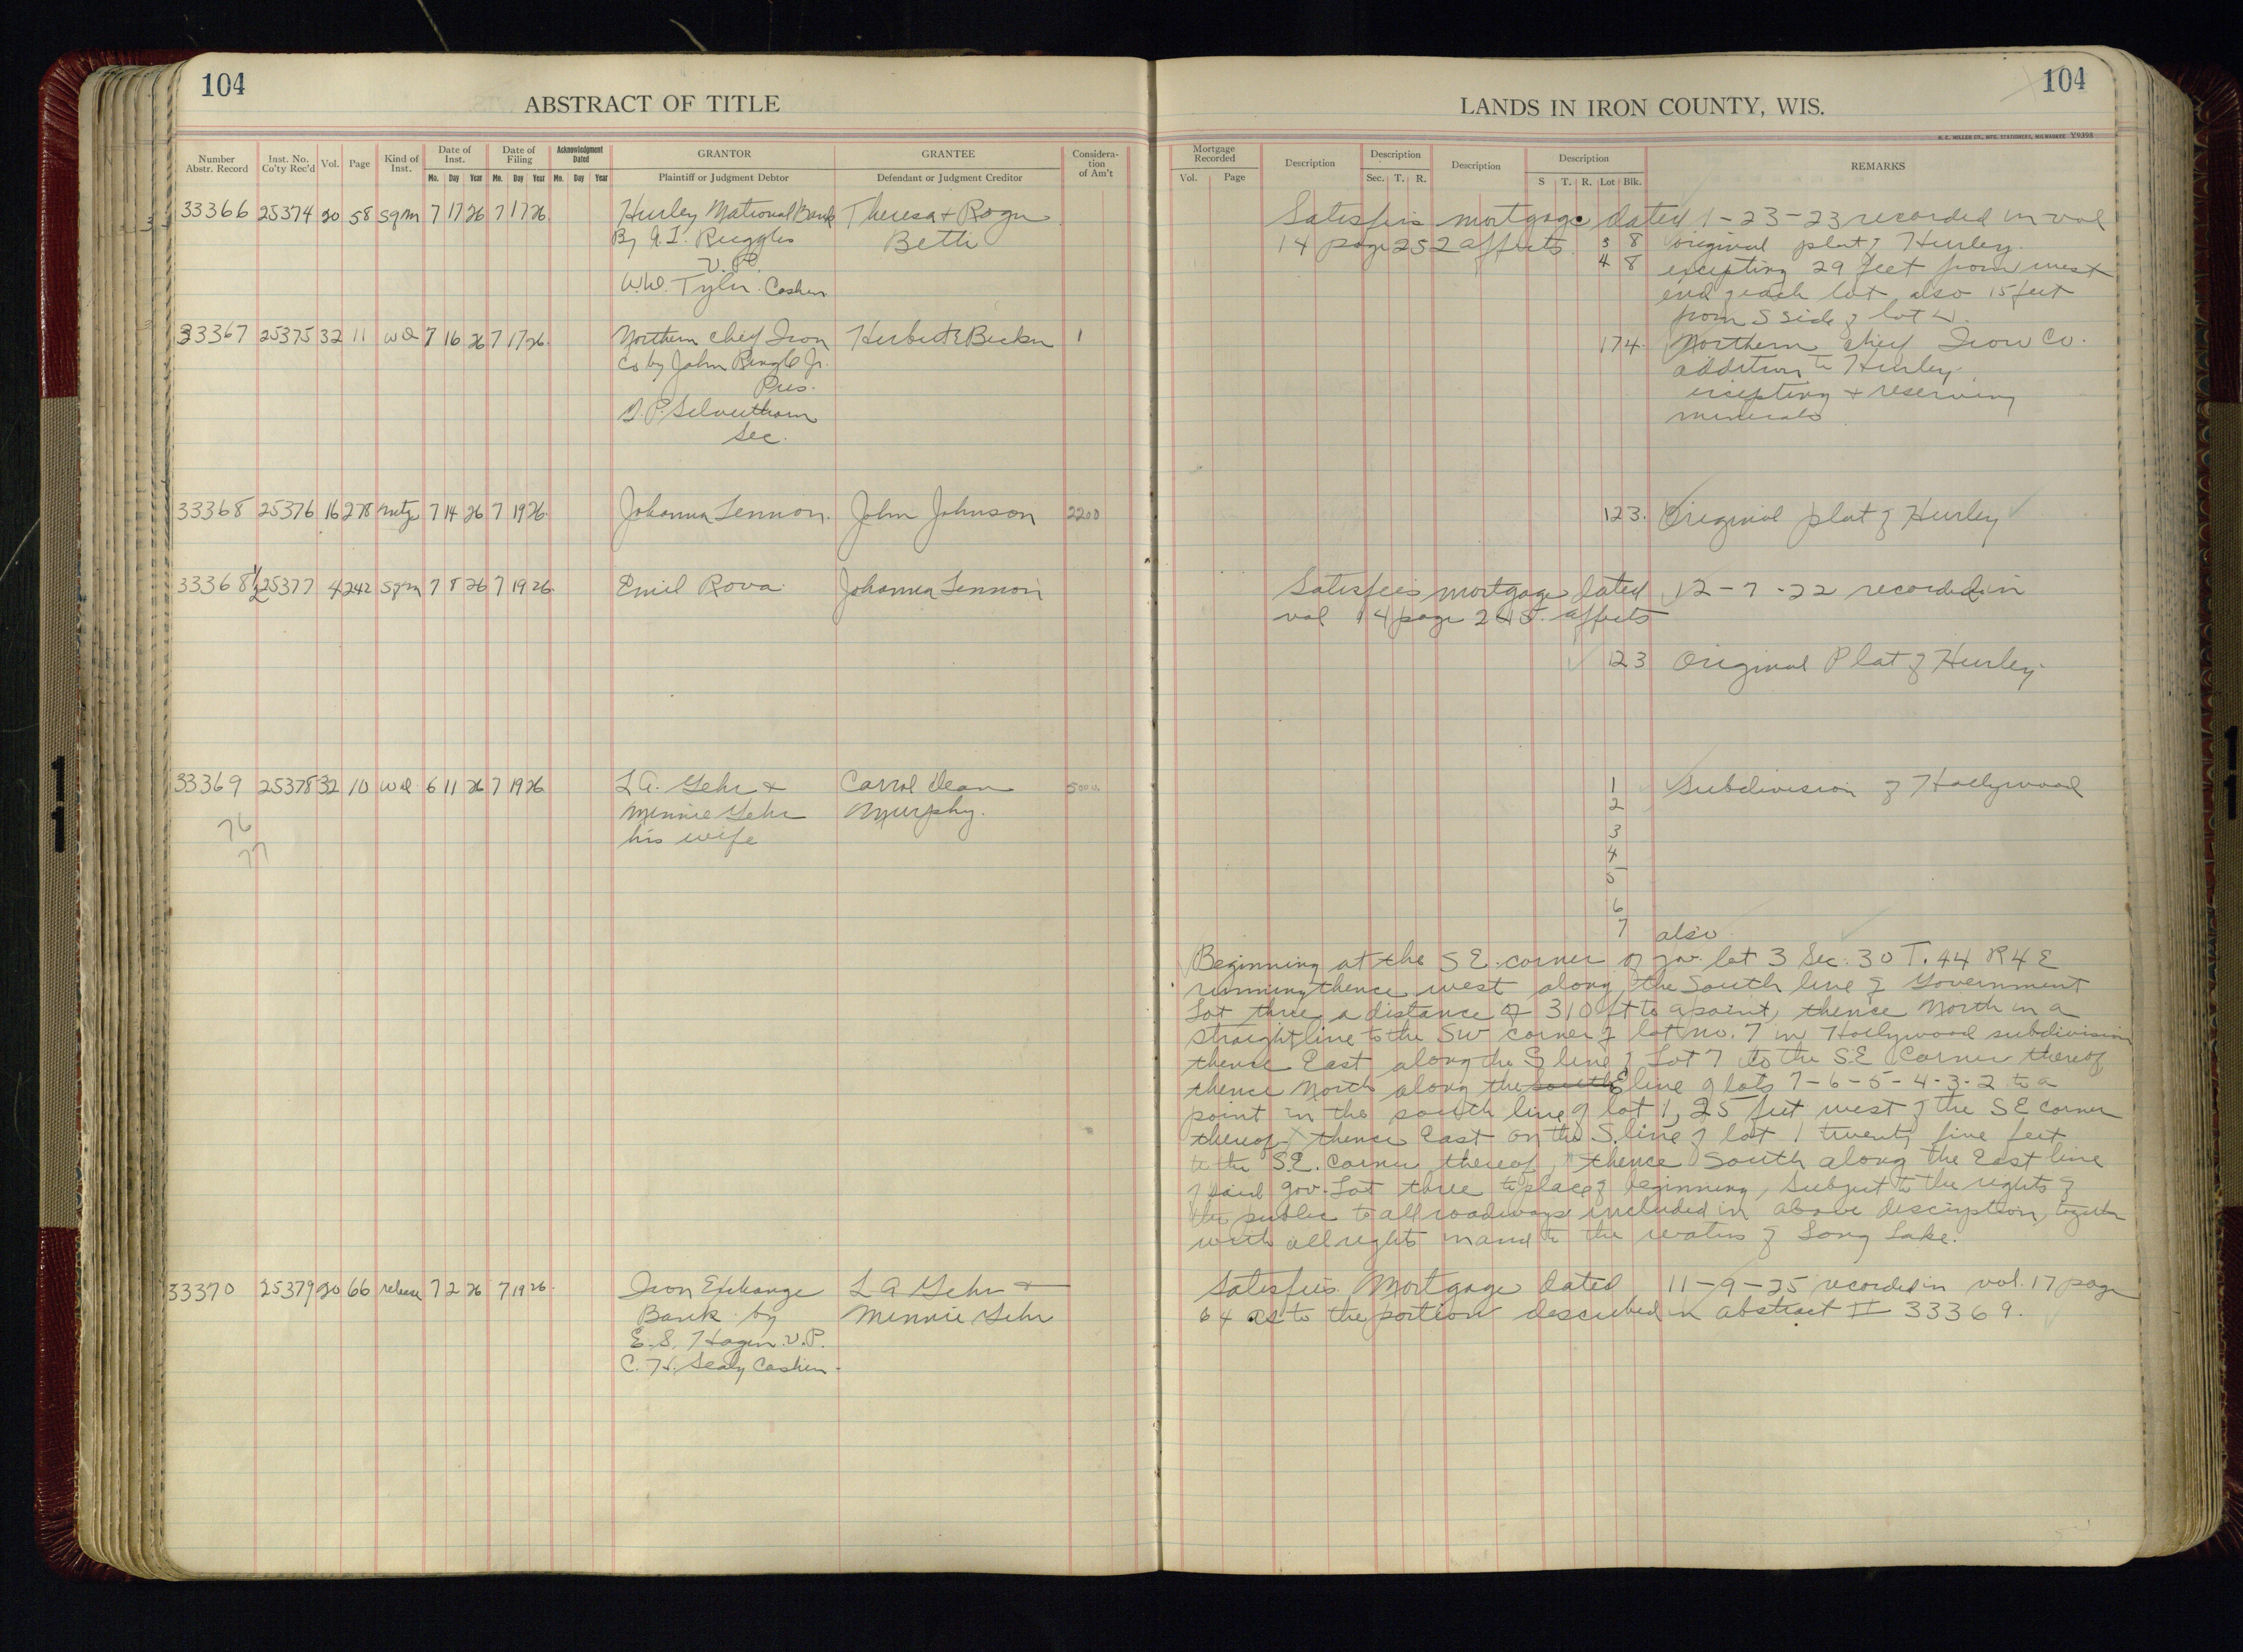 104
ABSTRACT OF TITLE
Number Abstr. Record
Inst. No. Co'ty Rec'd
Vol.
Page
Kind of Inst.
Date of Inst.
Mo. Day Year
Date of Filing
Mo. Day Year
Acknowledgment Dated
Mo. Day Year
GRANTOR
Plaintiff or Judgment Debtor
GRANTEE
Defendant or Judgment Creditor
Considera-tion of Am't
33366 25374 20 58 Sgm 7 17 26 7 17 26 Hurley National Bank Theresa + Roger
By A. I. Ruggles Betti
V. P.
W.W. Tyler. Cashier
33367 25375 32 11 WD 7 16 26 7 17 26 Northern Chief Iron Herbert E Becker 1
Co by John Ringle Jr.
Pres.
Silverthorn
Sec.
33368 25376 16 278 mtg 7 14 26 7 19 26 Johanna Lennon. John Johnson 2200
33368 1/2 25377 4 242 Sgm 7 8 26 7 19 26 Emil Rova Johanna Lennon
33369 25378 32 10 wd 6 11 26 7 19 26 L.A. Gehr + Carrol Dean
Minnie Gehr Murphy.
his wife
76
77
33370 25379 20 66 release 7 2 26 7 19 26 Iron Exchange L A Gehr +
Bank by Minnie Gehr
E. S. Hagen V.P.
C. H. Sealy Cashier
104
LANDS IN IRON COUNTY, WIS.
H. C. MILLER CO., MFG. STATIONERS, MILWAUKEE Y9398
Mortgage Recorded
Vol. Page
Description
Description
Sec. T. R.
Description
Description
S T. R. Lot Blk.
REMARKS
Satisfies mortgage dated 1-23-23 recorded in vol
14 page 252 affects 3 8 original plat of Hurley.
4 8 excepting 29 feet from west
end of each lot also 15 feet
from S side of lot
17 4. Northern Chief Iron Co.
addition to Hurley
excepting + reserving
minerals
12 3. Original plat of Hurley
Satisfies mortgage dated 12-7-22 recorded in
vol 14 page 245. affects
12 3 Original Plat of Hurley.
1 Subdivision of Hollywood
2
3
4
5
6
7 also
Beginning at the SE. corner of gov. lot 3 Sec. 30 T. 44 R 4 E
running thence west along the South line of Government
Lot three a distance of 310 ft to a point, thence North in a
straight line to the SW corner of lot no. 7 in Hollywood subdivision
thence East along the S line of Lot 7 to the SE Corner thereof
thence North along the south E line of lots 7-6-5-4-3-2 to a
point in the south line of lot 1, 25 feet west of the SE corner
thereof thence East on the S. line of lot 1 twenty five feet
to the S.E. Corner thereof, thence South along the East line
of said gov. Lot three to place of beginning, Subject to the rights of
the public to all roadways included in above description, together
with all rights in and to the waters of Long Lake.
Satisfies Mortgage dated 11-9-25 recorded in vol. 17 page
64 as to the portion described in abstract # 33369.